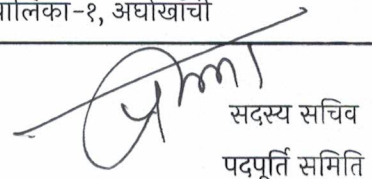 पालिका-१, अर्घाखाँची
सदस्य सचिव
पदपूर्ति समिति